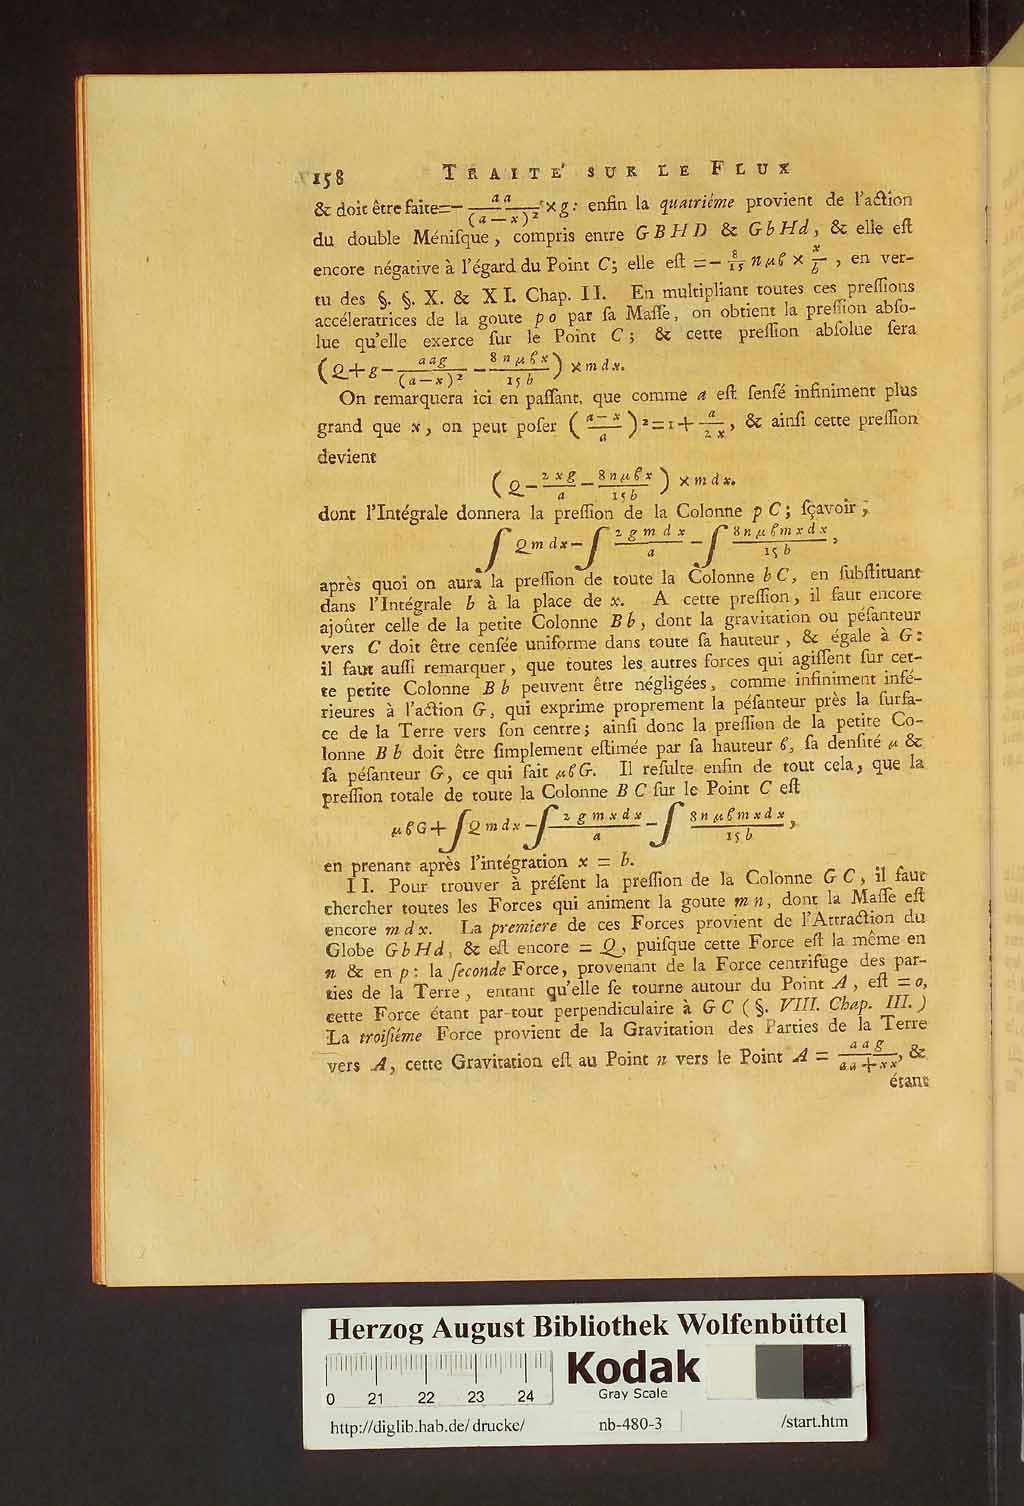 158 TRAITE' SUR LE FLUX
& doit être faite=— aa/(a—x)² ×g: enfin la quatriéme provient de l'action
du double Méniſque, compris entre GBHD & GbHd, & elle eſt
encore négative à l'égard du Point C; elle eſt =— 8/15 nμϐ × x/b, en ver-
tu des §. §. X. & XI. Chap. II. En multipliant toutes ces preſſions
accéleratrices de la goute po par ſa Maſſe, on obtient la preſſion abſo-
lue qu'elle exerce ſur le Point C; & cette preſſion abſolue ſera
(Q+g— aag/(a—x)² — 8nμϐx/15b) ×mdx.
On remarquera ici en paſſant, que comme a eſt ſenſé infiniment plus
grand que x, on peut poſer ( a—x/a )²=1+ a/2x, & ainſi cette preſſion
devient
(Q— 2xg/a — 8nμϐx/15b ) ×mdx.
dont l'Intégrale donnera la preſſion de la Colonne pC; ſçavoir,
∫Qmdx—∫ 2gmdx/a —∫ 8nμϐmxdx/15b,
après quoi on aura la preſſion de toute la Colonne bC, en ſubſtituant
dans l'Intégrale b à la place de x. A cette preſſion, il faut encore
ajoûter celle de la petite Colonne Bb, dont la gravitation ou péſanteur
vers C doit être cenſée uniforme dans toute ſa hauteur, & égale à G:
il faut auſſi remarquer, que toutes les autres forces qui agiſſent ſur cet-
te petite Colonne Bb peuvent être négligées, comme infiniment infé-
rieures à l'action G, qui exprime proprement la péſanteur près la ſurfa-
ce de la Terre vers ſon centre; ainſi donc la preſſion de la petite Co-
lonne Bb doit être ſimplement eſtimée par ſa hauteur ϐ, ſa denſité μ &
ſa péſanteur G, ce qui fait μϐG. Il reſulte enfin de tout cela, que la
preſſion totale de toute la Colonne BC ſur le Point C eſt
μϐG+∫Qmdx—∫ 2gmxdx/a —∫ 8nμϐmxdx/15b,
en prenant après l'intégration x = b.
II. Pour trouver à préſent la preſſion de la Colonne GC, il faut
chercher toutes les Forces qui animent la goute mn, dont la Maſſe eſt
encore mdx. La premiere de ces Forces provient de l'Attraction du
Globe GbHd, & eſt encore = Q, puiſque cette Force eſt la même en
n & en p: la ſeconde Force, provenant de la Force centrifuge des par-
ties de la Terre, entant qu'elle ſe tourne autour du Point A, eſt =o,
cette Force étant par-tout perpendiculaire à GC (§. VIII. Chap. III.)
La troiſiéme Force provient de la Gravitation des Parties de la Terre
vers A, cette Gravitation eſt au Point n vers le Point A = aag/aa+xx, &
étant
Herzog August Bibliothek Wolfenbüttel
Kodak
Gray Scale
0 21 22 23 24
http://diglib.hab.de/drucke/ nb-480-3 /start.htm